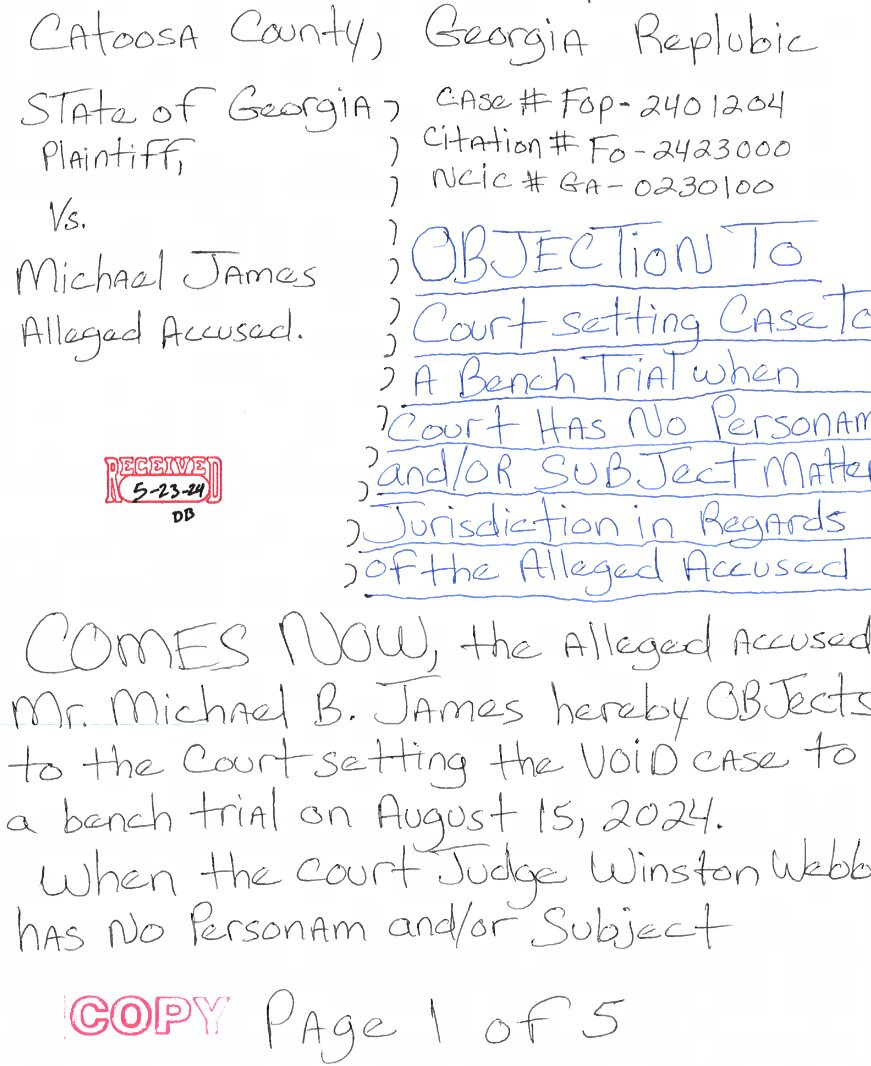 CAtoosA County, GeorgiA Replubic
STAte of GeorgiA )
PlAintiff,
Vs.
MichAel JAmes
Alleged Accused.
CAse # FOP-2401204
Citation # FO-2423000
NCIC # GA-0230100
OBJECTioN To
Court setting CAse To
A Bench TriAl when
Court HAs No PersonAm
and/OR SUBJect Matter
Jurisdiction in RegArds
of the Alleged Accused
RECEIVED
5-23-24
DB
COMES NOW, the Alleged Accused
Mr. MichAel B. JAmes hereby OBJects
to the Court setting the VOiD cAse to
a bench triAl on August 15, 2024.
When the court Judge Winston Webb
hAs No PersonAm and/or Subject
COPY PAge 1 of 5